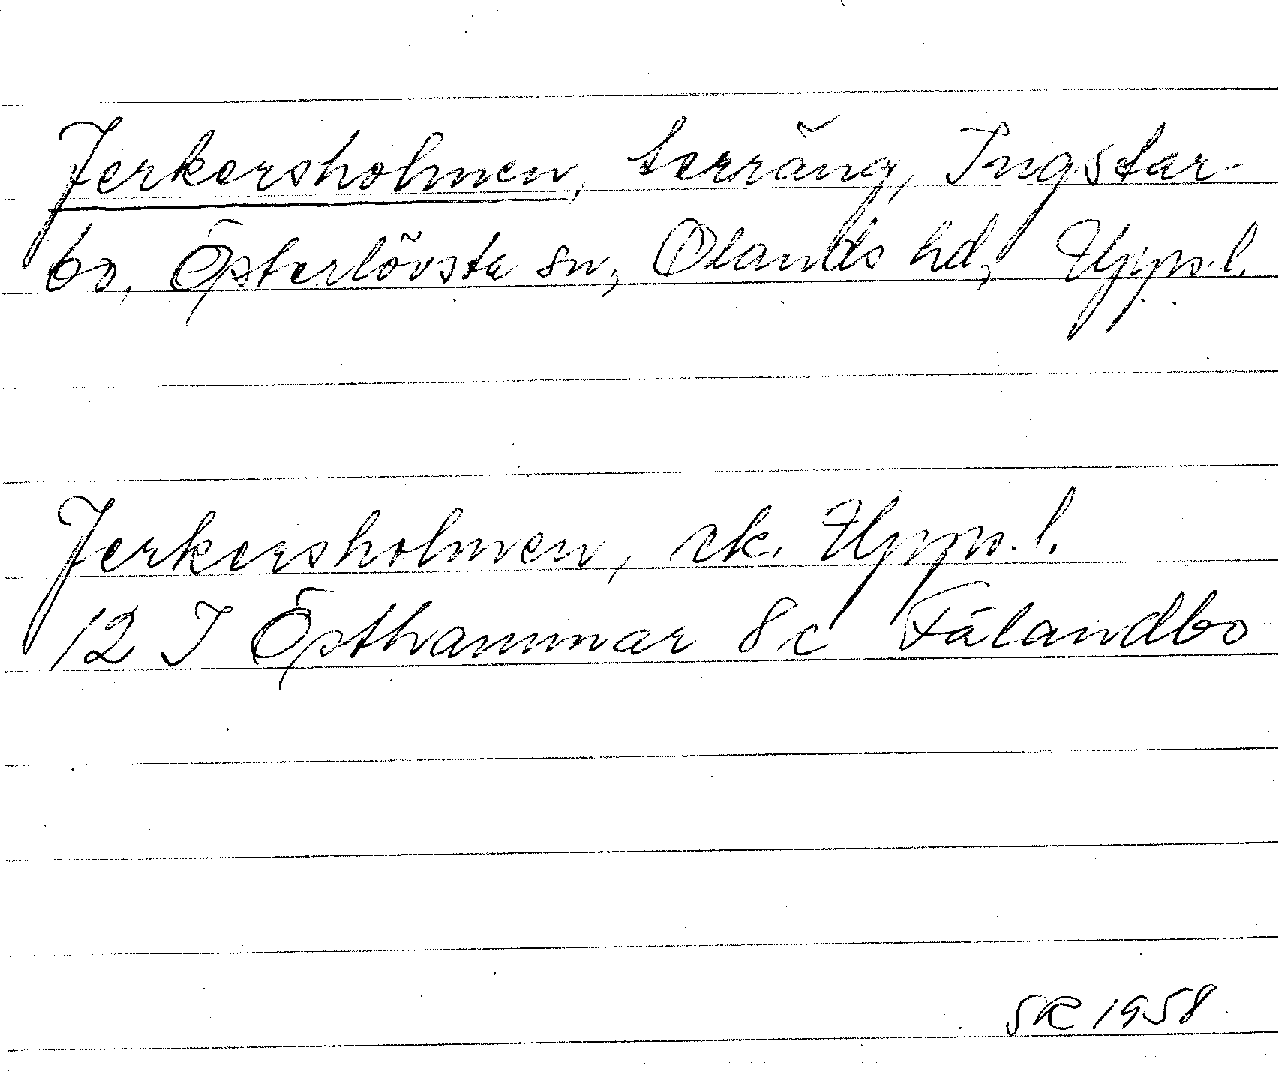 Jerkersholmen, terräng, Ingstar-
bo, Österlövsta sn, Olands hd, Uppl.
Jerkersholmen, ek. Uppl.
12 I Östhammar 8c Fälandbo
SK 1958